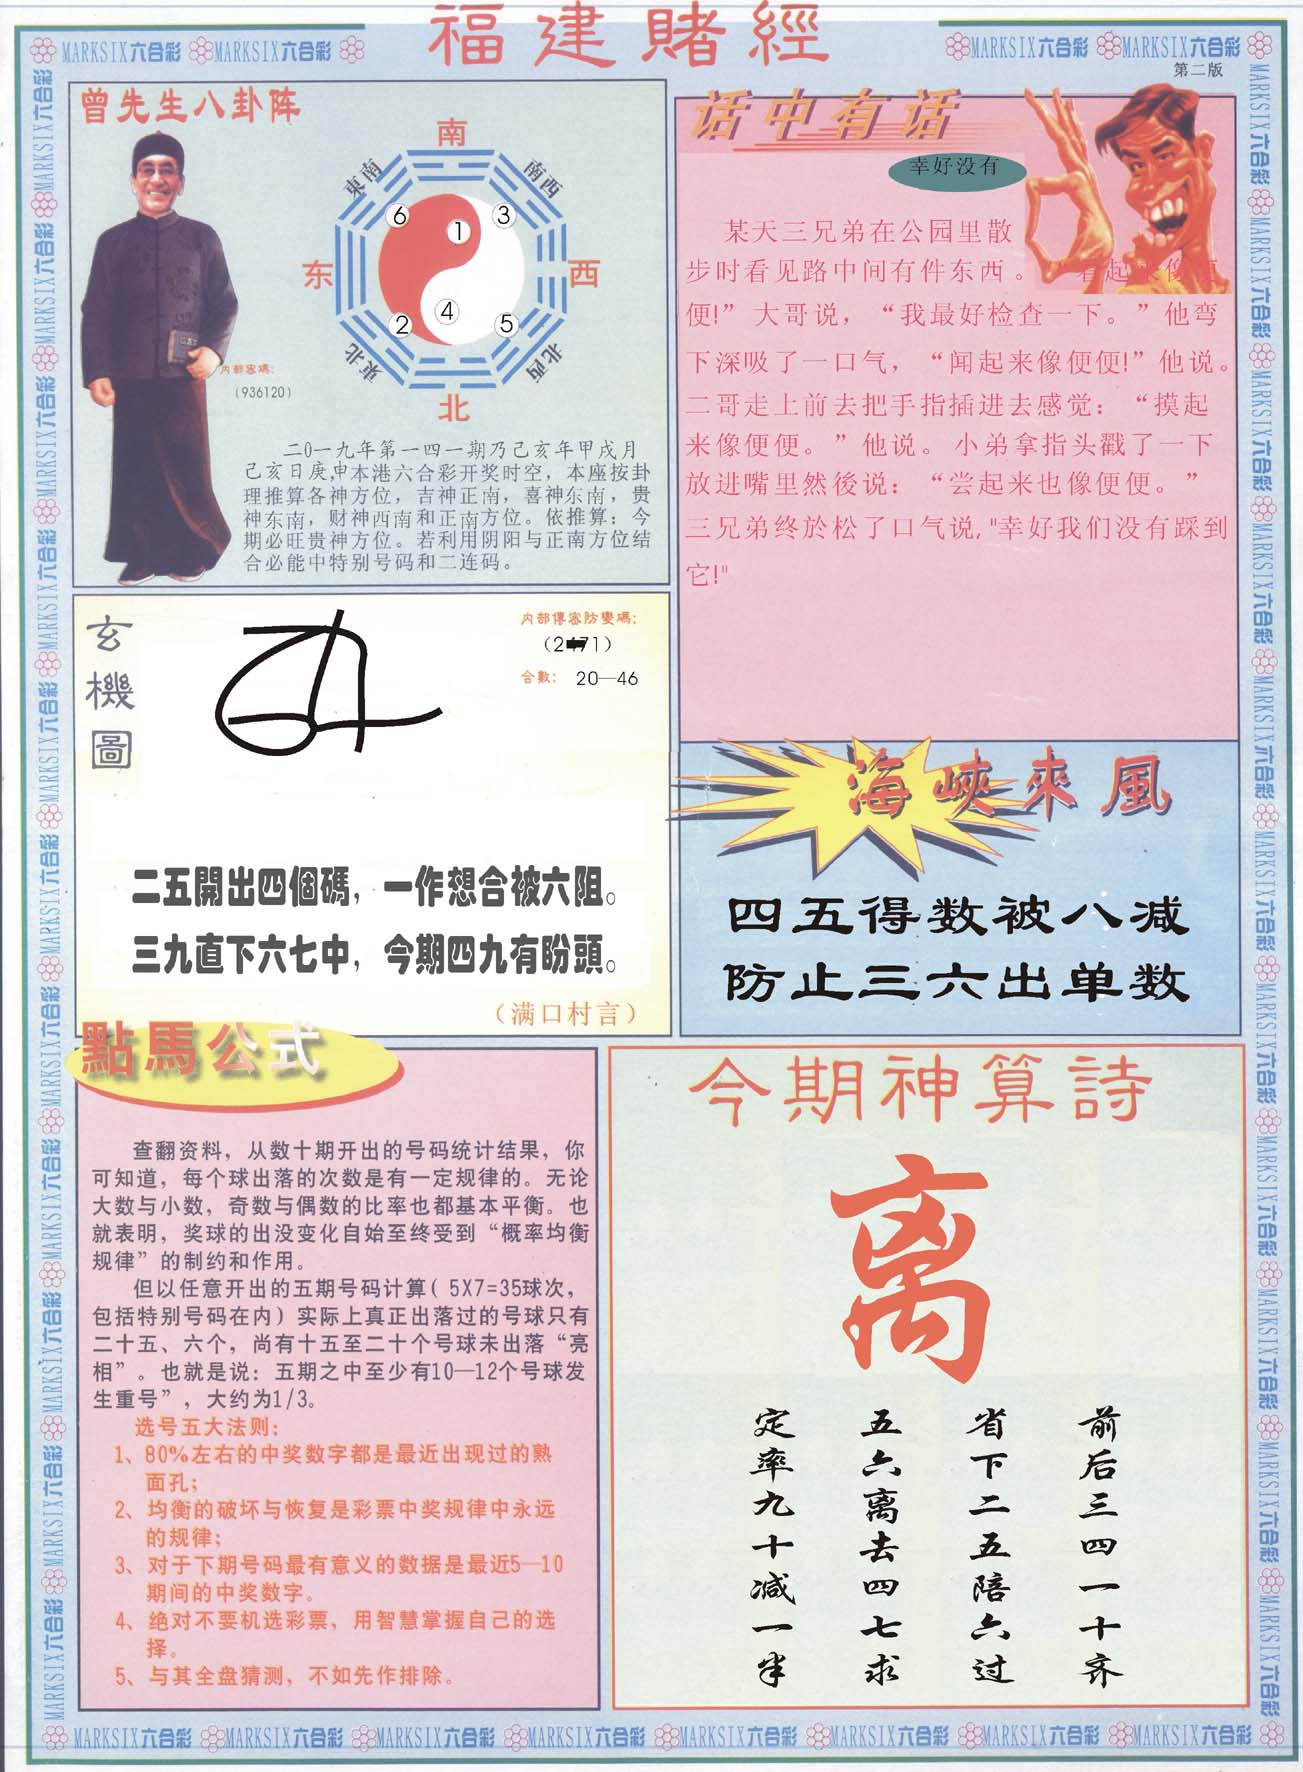 福建賭經
MARKSIX六合彩 MARKSIX六合彩
MARKSIX六合彩 MARKSIX六合彩
第二版
曾先生八卦阵
南
東南
南西
6
1
3
东
西
2
4
5
東北
北西
北
内部密碼:
(936120)
二0一九年第一四一期乃己亥年甲戌月
己亥日庚,申本港六合彩开奖时空，本座按卦
理推算各神方位，吉神正南，喜神东南，贵
神东南，财神西南和正南方位。依推算：今
期必旺贵神方位。若利用阴阳与正南方位结
合必能中特别号码和二连码。
话中有话
幸好没有
某天三兄弟在公园里散
步时看见路中间有件东西。“看起来像便
便!”大哥说，“我最好检查一下。”他弯
下深吸了一口气，“闻起来像便便!”他说。
二哥走上前去把手指插进去感觉：“摸起
来像便便。”他说。小弟拿指头戳了一下
放进嘴里然後说：“尝起来也像便便。”
三兄弟终於松了口气说,"幸好我们没有踩到
它!"
玄機圖
内部傳密防變碼:
合數: 20—46
二五開出四個碼，一作想合被六阻。
三九直下六七中，今期四九有盼頭。
（满口村言）
海峽來風
四五得数被八减
防止三六出单数
點馬公式
查翻资料，从数十期开出的号码统计结果，你
可知道，每个球出落的次数是有一定规律的。无论
大数与小数，奇数与偶数的比率也都基本平衡。也
就表明，奖球的出没变化自始至终受到“概率均衡
规律”的制约和作用。
但以任意开出的五期号码计算( 5X7=35球次，
包括特别号码在内）实际上真正出落过的号球只有
二十五、六个，尚有十五至二十个号球未出落“亮
相”。也就是说：五期之中至少有10—12个号球发
生重号”，大约为1/3。
选号五大法则：
1、80%左右的中奖数字都是最近出现过的熟
面孔；
2、均衡的破坏与恢复是彩票中奖规律中永远
的规律；
3、对于下期号码最有意义的数据是最近5—10
期间的中奖数字。
4、绝对不要机选彩票，用智慧掌握自己的选
择。
5、与其全盘猜测，不如先作排除。
今期神算詩
离
前后三四一十齐
省下二五陪六过
五六离去四七求
定率九十减一半
MARKSIX六合彩 MARKSIX六合彩 MARKSIX六合彩 MARKSIX六合彩 MARKSIX六合彩 MARKSIX六合彩 MARKSIX六合彩 MARKSIX六合彩